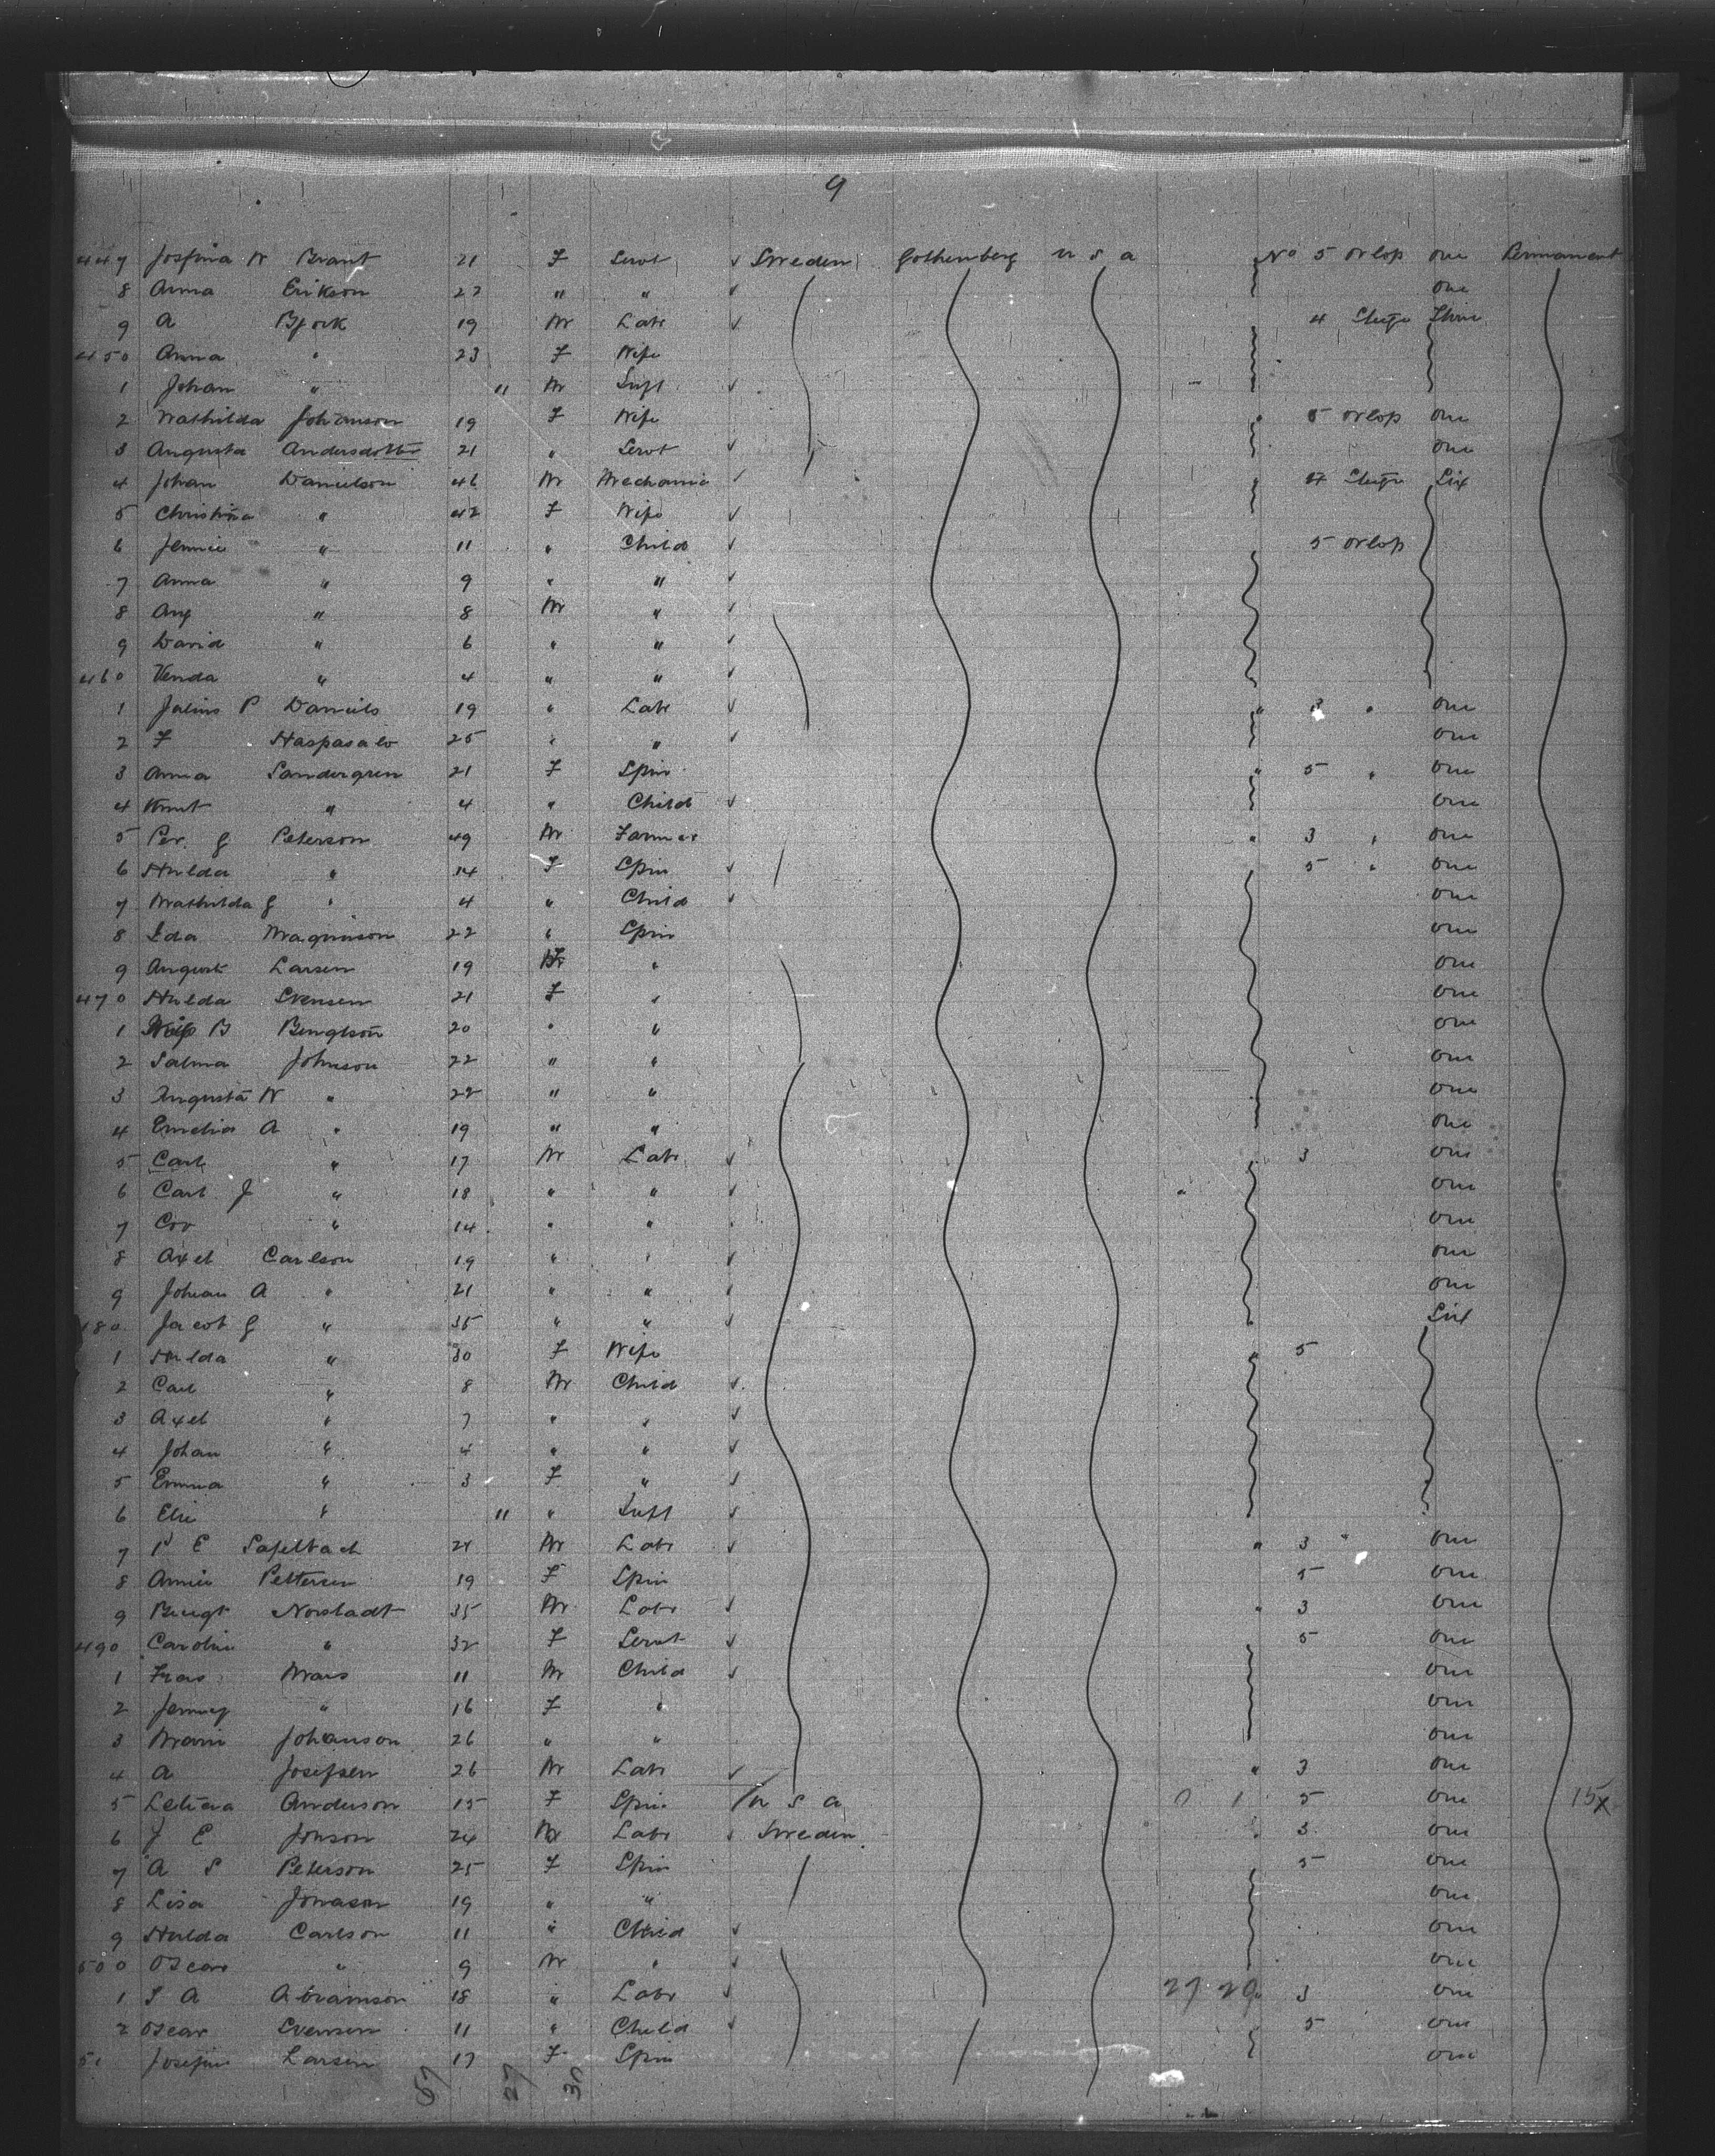 9
447 Josfina W Brant 21 F Servt ✓ Sweden Gothenberg U S A No 5 Orlop one Permanent
8 Anna Erikson 22 " " ✓ one
9 A Bjork 19 M Labr ✓ 4 Three
450 Anna " 23 F Wife
1 Johan " " M Inft ✓
2 Mathilda Johanson 19 F Wife " 5 Orlop one
3 Augusta Andersdotter 21 " Servt ✓ one
4 Johan Danielson 46 M Mechanic ✓ " 4 Six
5 Christina " 42 F Wife ✓
6 Jennie " 11 " Child ✓ 5 Orlop
7 Anna " 9 " " ✓
8 Aug " 8 M " ✓
9 David " 6 " " ✓
460 Venda " 4 " " ✓
1 Julius P Daniels 19 " Labr ✓ " 3 " one
2 F 25 " " ✓ one
3 Anna Sandergren 21 F Spin " 5 " one
4 Knut " 4 " Child ✓ one
5 Per. G Peterson 49 M Farmer " 3 " one
6 Hulda " 14 F Spin ✓ 5 " one
7 Mathilda G " 4 " Child ✓ one
8 Ida Magnuson 22 " Spin one
9 August Larsen 19 " one
470 Hulda Svensen 21 F " one
1 B Bengtson 20 " " one
2 Salma Johnson 22 " " one
3 Augusta W " 22 " " one
4 Emelia A " 19 " " one
5 Carl " 17 M Labr ✓ 3 one
6 Carl J " 18 " " ✓ one
7 " 14 " " one
8 Axel Carlson 19 " " ✓ one
9 Johan A " 21 " " ✓ one
480 Jacob G " 35 " " ✓ Six
1 Hulda " 30 F Wife " 5
2 Carl " 8 M Child ✓
3 Axel " 7 " " ✓
4 Johan " 4 " " ✓
5 Emma " 3 F " ✓
6 " " " Inft ✓
7 P E 24 M Labr ✓ " 3 " one
8 Annie Pettersen 19 F Spin 5 one
9 Bengt Norstadt 35 M Labr ✓ " 3 one
490 Caroline " 32 F Servt ✓ 5 one
1 11 M Child ✓ one
2 Jenny " 16 F " one
3 Johanson 26 " " one
4 A Josefsen 26 M Labr ✓ " 3 one
5 Anderson 15 F Spin U S A 0 1 5 one 15x
6 J E Jonson 24 M Labr ✓ Sweden " 3 one
7 A S Peterson 25 F Spin 5 one
8 Lisa Jonason 19 " " one
9 Hulda Carlson 11 " Child ✓ one
500 Oscar " 9 M " ✓ one
1 S A Abramson 18 " Labr ✓ 27 29 " 3 one
2 Oscar Svensen 11 " Child ✓ 5 one
Josefine Larsen 17 F Spin one
57 27 30